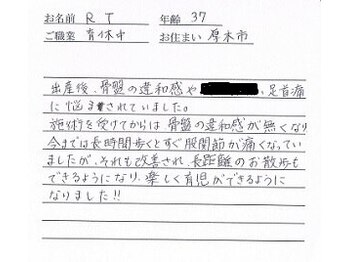 お名前 RT 年齢 37
ご職業 育休中 お住まい 厚木市
出産後、骨盤の違和感や 、足首痛
に悩まされていました。
施術を受けてからは、骨盤の違和感が無くなり
今までは長時間歩くとすぐ股関節が痛くなってい
ましたが、それも改善され、長距離のお散歩も
できるようになり、楽しく育児ができるように
なりました!!